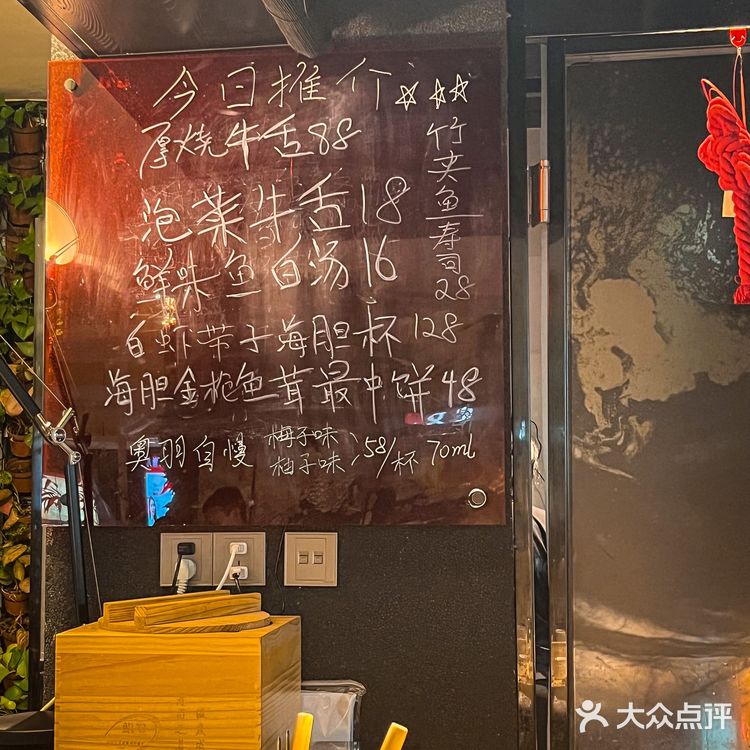 今日推介☆☆☆
厚烧牛舌88
泡菜牛舌18
鲜味鱼白汤16
白虾带子海胆杯128
海胆金枪鱼茸最中饼48
奥羽自慢 梅子味 柚子味 58/杯 70ml
竹夹鱼寿司28
大众点评